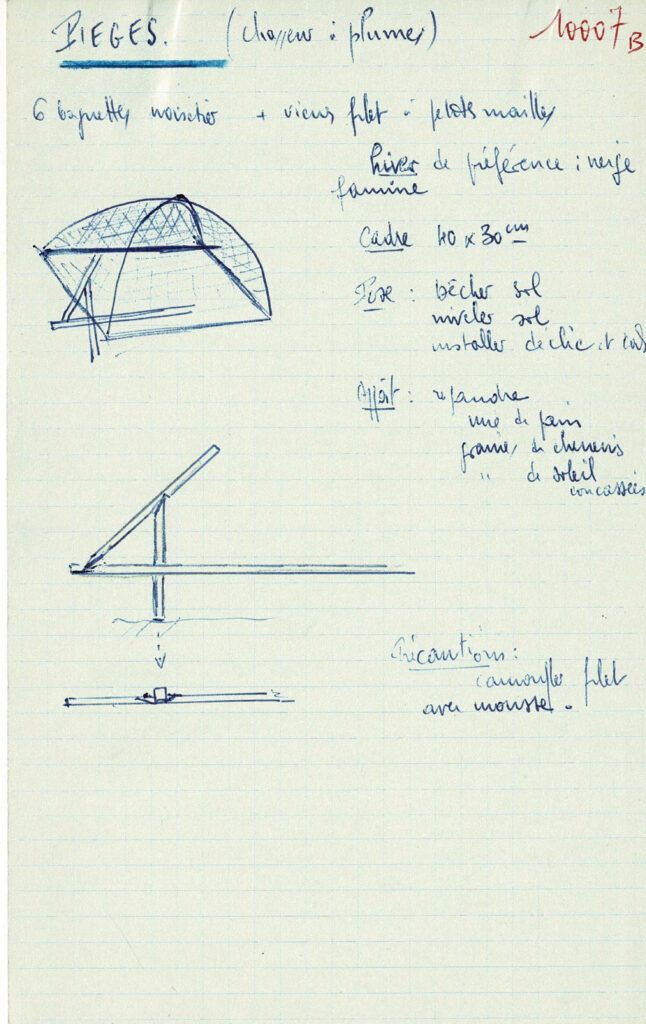 PIEGES. (chasseur à plumes) 10007 B
6 baguettes noisetier + vieux filet à petites mailles
hiver de préférence : neige
famine
Cadre 40 x 30 cm
Pose : bêcher sol
niveler sol
installer déclic et
Appât : répandre
mie de pain
graines de chenevis
" de soleil
concassées
Précautions :
camoufler filet
avec mousse.